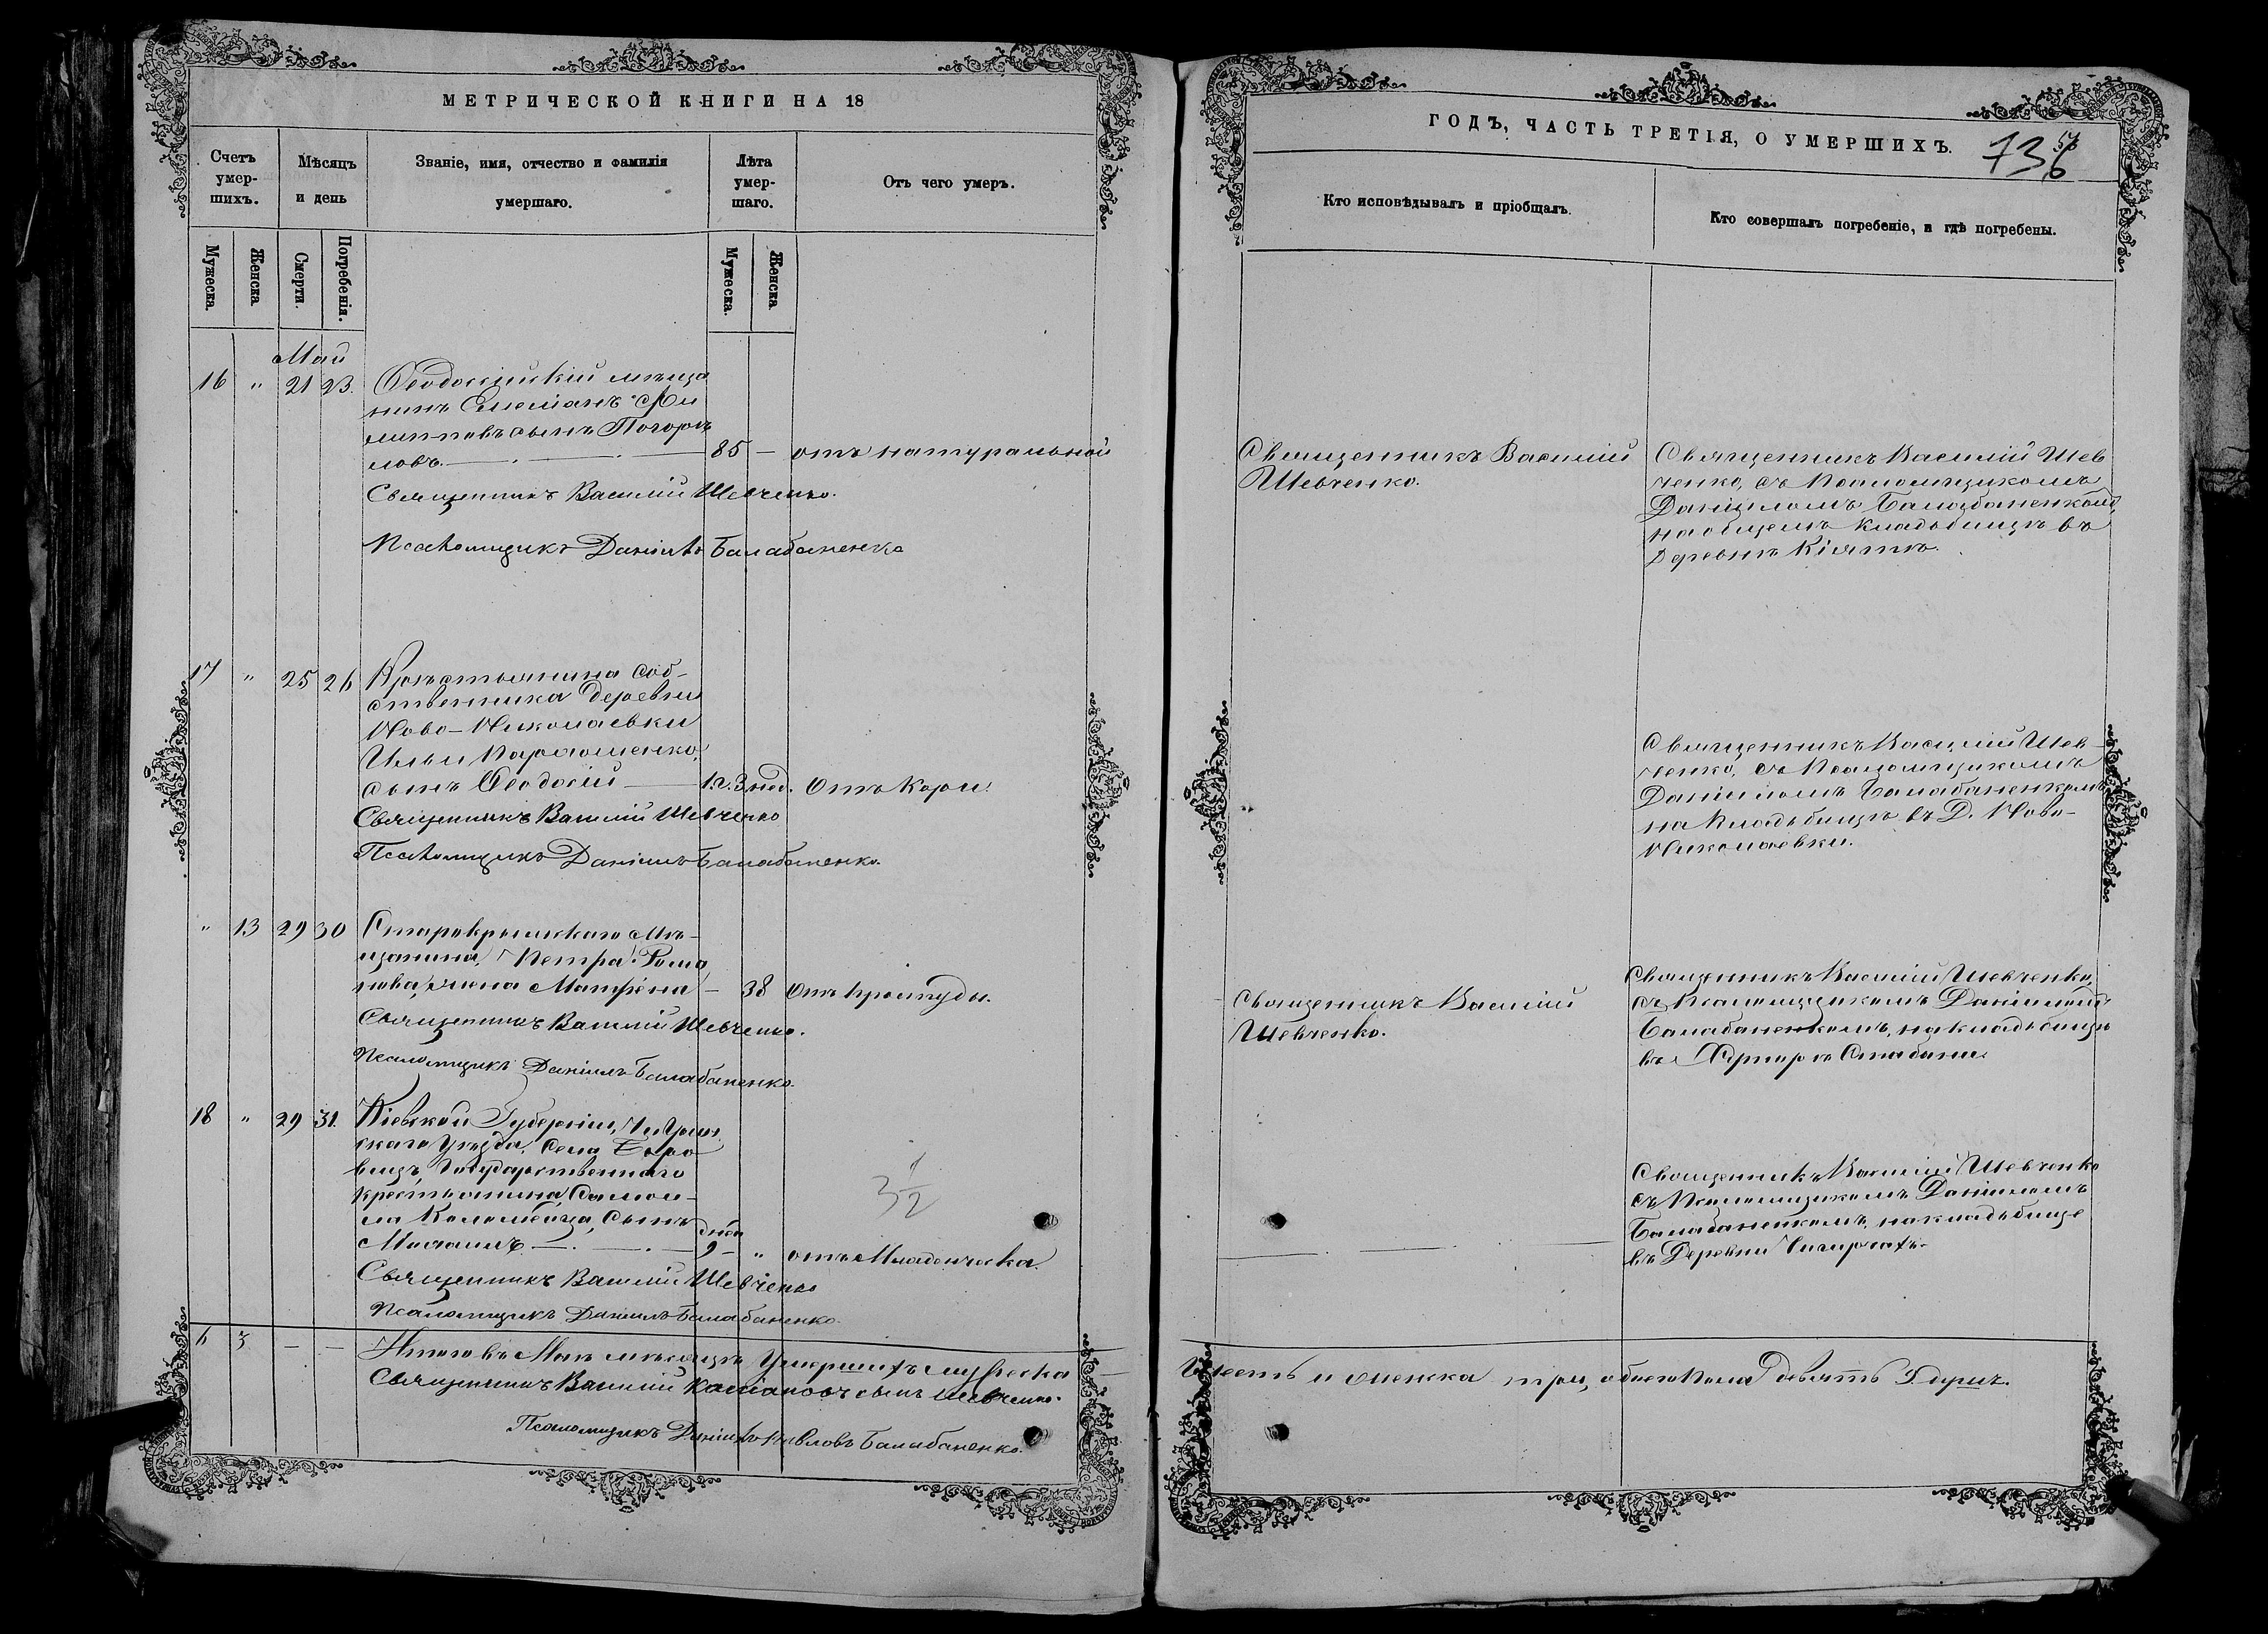 МЕТРИЧЕСКОЙ КНИГИ НА 18
Счетъ умер-шихъ.
Мѣсяцъ и день
Званіе, имя, отчество и фамилія умершаго.
Лѣта умер-шаго.
Отъ чего умеръ.
Мужеска.
Женска
Смерти.
Погребенія.
Мужеска.
Женска
Май
16 " 21 23. Ѳеодосійскій мѣща
нинъ Симеонъ Фи
липповъ сынъ
85 — отъ натуральной
Священникъ Василій Шевченко.
Псаломщикъ Даніилъ Балабаненко
17 " 25 26 Крестьянина соб-
ственника деревни
Ново-Николаевки
Ильи
сынъ Ѳеодосій — 1.г. 3 нед. отъ кори.
Священникъ Василій Шевченко
Псаломщикъ Даніилъ Балабаненко.
" 13 29 30 Старокрымскаго мѣ-
щанина, Петра Рома
нова, жена Матрена — 38 отъ простуды.
Священникъ Василій Шевченко.
Псаломщикъ Даніилъ Балабаненко.
18 " 29 31. Кіевской Губерніи, Чигрин
скаго уѣзда, села Боро
вицъ, Государственнаго
крестьянина Самои-
ла сынъ
дней
9 — " отъ младенческа
3 1/2
Священникъ Василій Шевченко
Псаломщикъ Даніилъ Балабаненко.
6 3 — — Итого въ Маѣ мѣсяцѣ умершихъ мужеска —
Священникъ Василій Касіановъ сынъ Шевченко.
Псаломщикъ Даніилъ Павловъ Балабаненко.
ГОДЪ, ЧАСТЬ ТРЕТІЯ, О УМЕРШИХЪ.
736
Кто исповѣдывалъ и пріобщалъ.
Кто совершалъ погребеніе, и гдѣ погребены.
Священникъ Василій
Шевченко.
Священникъ Василій Шев
ченко, съ Псаломщикомъ
Даніиломъ Балабаненкомъ,
на общемъ кладьбищѣ въ
Деревнѣ Кіятъ.
Священникъ Василій Шев-
ченко, съ Псаломщикомъ
Даніиломъ Балабаненкомъ
на кладьбищѣ въ Д. Ново-
Николаевки.
Священникъ Василій
Шевченко.
Священникъ Василій Шевченко,
съ Псаломщикомъ Даніиломъ
Балабаненкомъ, на кладьбищѣ
въ
Священникъ Василій Шевченко
съ Псаломщикомъ Даніиломъ
Балабаненкомъ, на кладьбище
въ Деревни
Шесть и женска три, обоего пола девять 9 душъ.